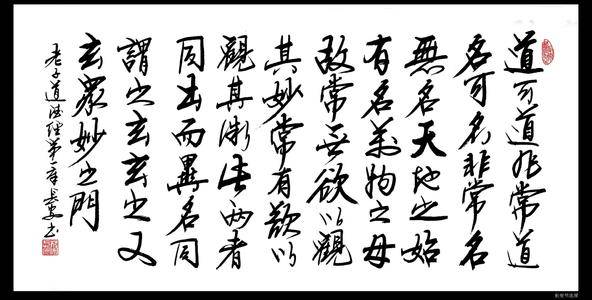 道可道非常道
名可名非常名
無名天地之始
有名万物之母
故常無欲以觀
其妙常有欲以
觀其徼此两者
同出而異名同
謂之玄玄之又
玄眾妙之門
老子道德经第一章 書